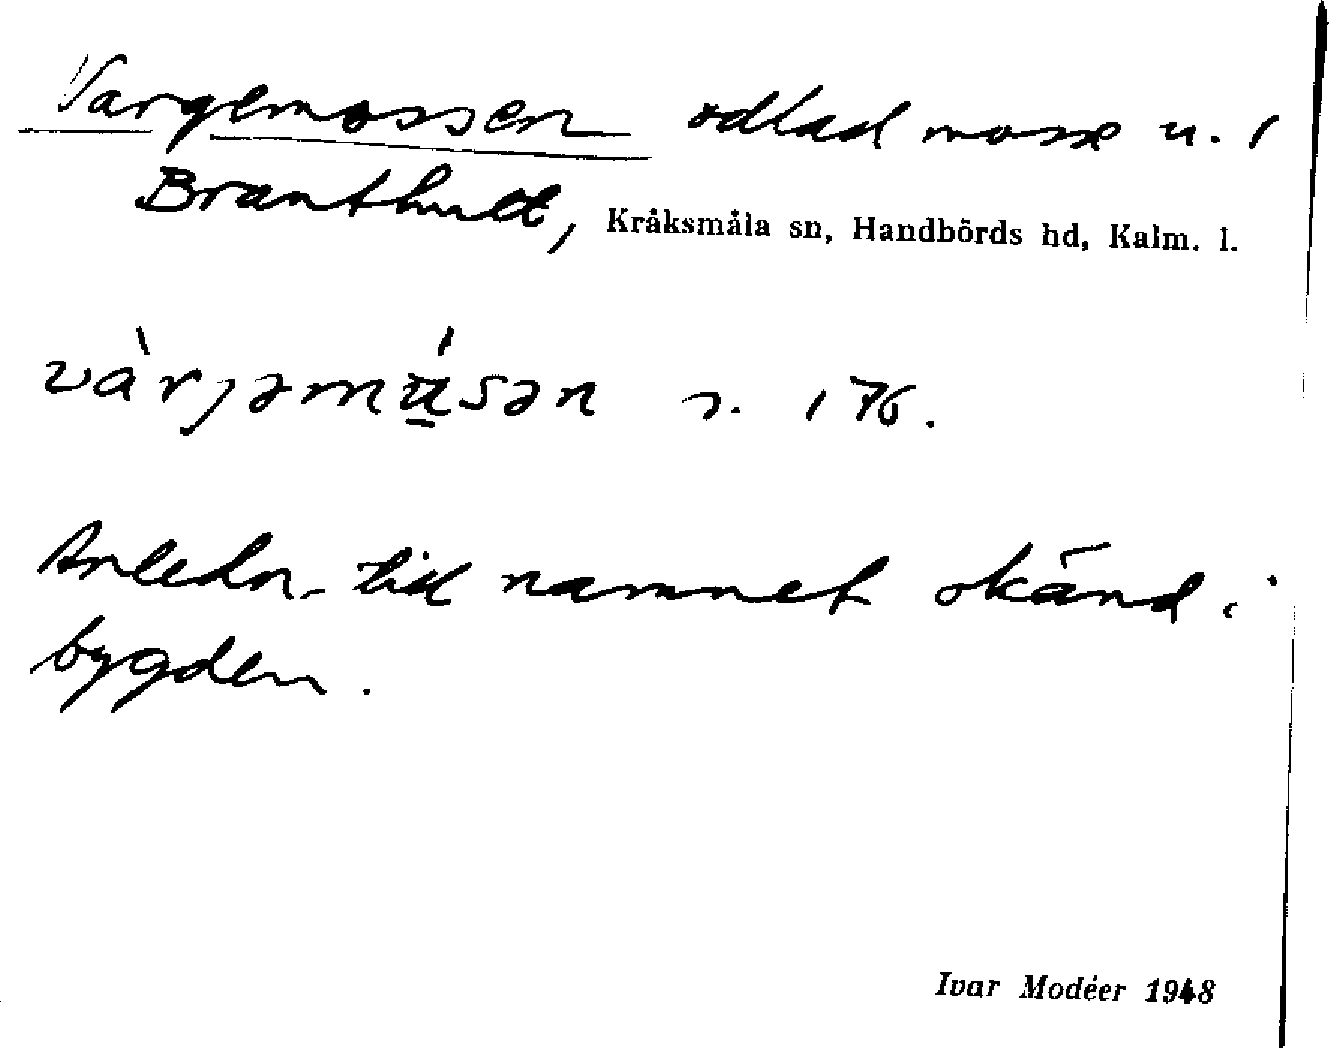 Vargemossen odlad mosse u. 1
Branthult, Kråksmåla sn, Handbörds hd, Kalm. l.
vàrjəmú̱sən s. 176.
Anledn. till namnet okänd i
bygden.
Ivar Modéer 1948